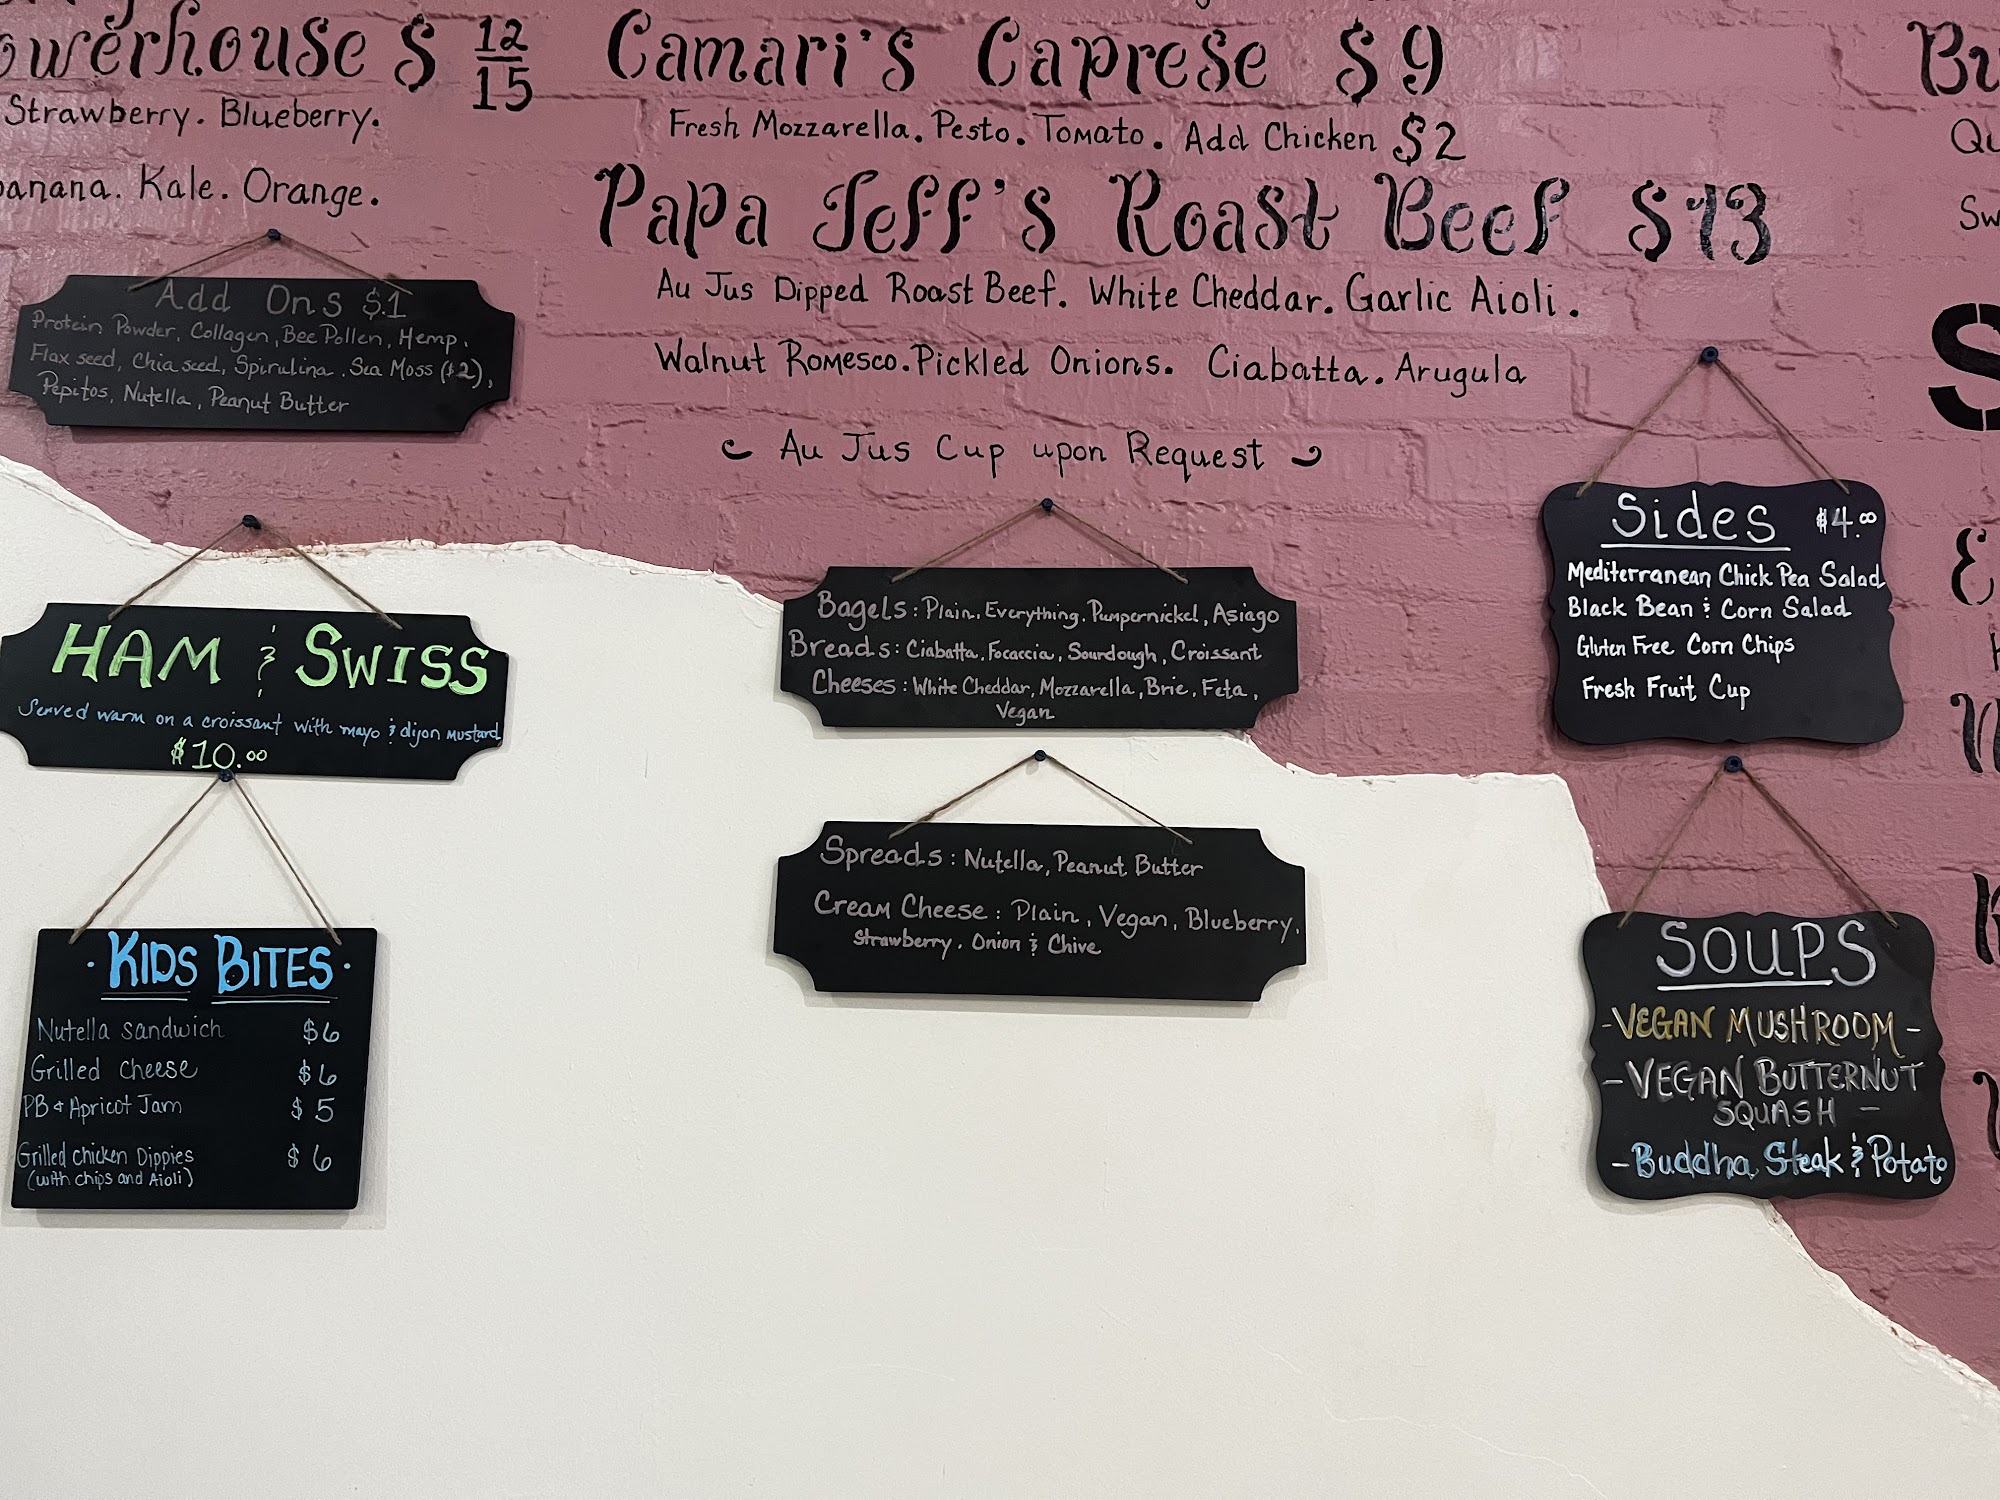 Powerhouse $ 12/15
Strawberry. Blueberry.
banana. Kale. Orange.
Add Ons $1
Protein Powder, Collagen, Bee Pollen, Hemp,
Flax seed, Chia seed, Spirulina, Sea Moss ($2),
Pepitos, Nutella, Peanut Butter
HAM & SWISS
Served warm on a croissant with mayo & dijon mustard
$10.00
· KIDS BITES ·
Nutella sandwich $6
Grilled cheese $6
PB & Apricot Jam $5
Grilled chicken Dippies $6
(with chips and Aioli)
Camari's Caprese $9
Fresh Mozzarella. Pesto. Tomato. Add Chicken $2
Papa Jeff's Roast Beef $13
Au Jus Dipped Roast Beef. White Cheddar. Garlic Aioli.
Walnut Romesco. Pickled Onions. Ciabatta. Arugula
Au Jus Cup upon Request
Bagels: Plain, Everything, Pumpernickel, Asiago
Breads: Ciabatta, Focaccia, Sourdough, Croissant
Cheeses: White Cheddar, Mozzarella, Brie, Feta,
Vegan
Spreads: Nutella, Peanut Butter
Cream Cheese: Plain, Vegan, Blueberry,
Strawberry, Onion & Chive
Sides $4.00
Mediterranean Chick Pea Salad
Black Bean & Corn Salad
Gluten Free Corn Chips
Fresh Fruit Cup
SOUPS
-VEGAN MUSHROOM-
-VEGAN BUTTERNUT
SQUASH-
-Buddha Steak & Potato